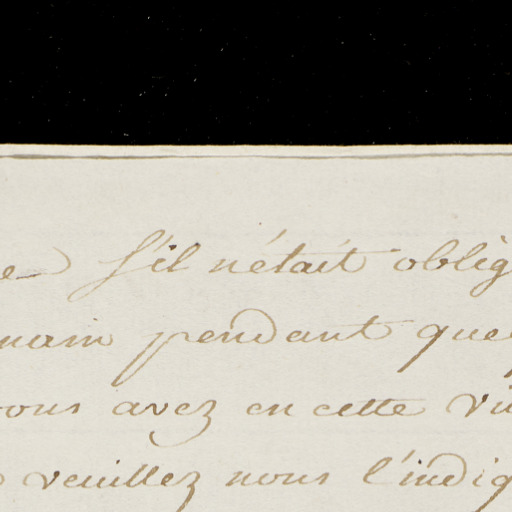 e s'il n'était oblig
nam pendant que
vous avez en cette vi
veuillez nous l'indiq